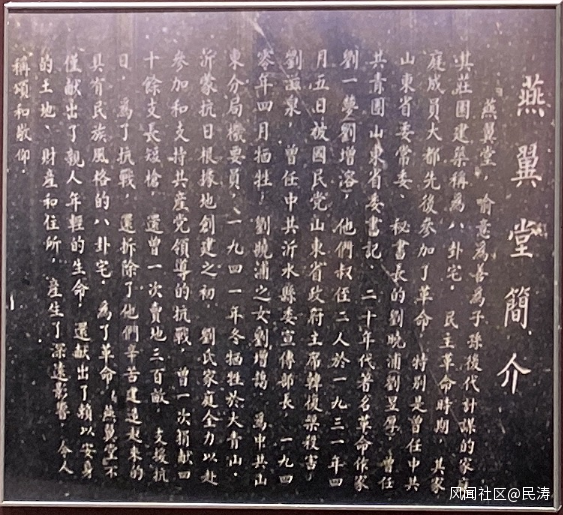 燕翼堂簡介
燕翼堂 喻意為善為子孫後代計謀的家
其莊園建築稱為八卦宅 民主革命時期,其家
庭成員大都先後參加了革命 特別是曾任中共
山東省委常委、秘書長的劉曉浦劉昱厚,曾任
共青團山東省委書記、二十年代著名革命作家
劉一夢劉增溶,他們叔侄二人於一九三一年四
月五日被國民党山東省政府主席韓復榘殺害,
劉溫泉,曾任中共沂水縣委宣傳部長 一九四
零年四月犧牲,劉曉浦之女劉增,為中共山
東分局機要員,一九四一年冬犧牲於大青山.
沂蒙抗日根據地創建之初 劉氏家庭全力以赴
參加和支持共產党領導的抗戰,曾一次捐獻四
十餘支長短槍 還曾一次賣地三百畝,支援抗
日,為了抗戰,還拆除了他們辛苦建造起來的
具有民族風格的八卦宅,為了革命 燕翼堂不
僅獻出了親人年輕的生命 還獻出了賴以安身
的土地、財產和住所,產生了深遠影響,令人
稱頌和敬仰.
风闻社区@民涛